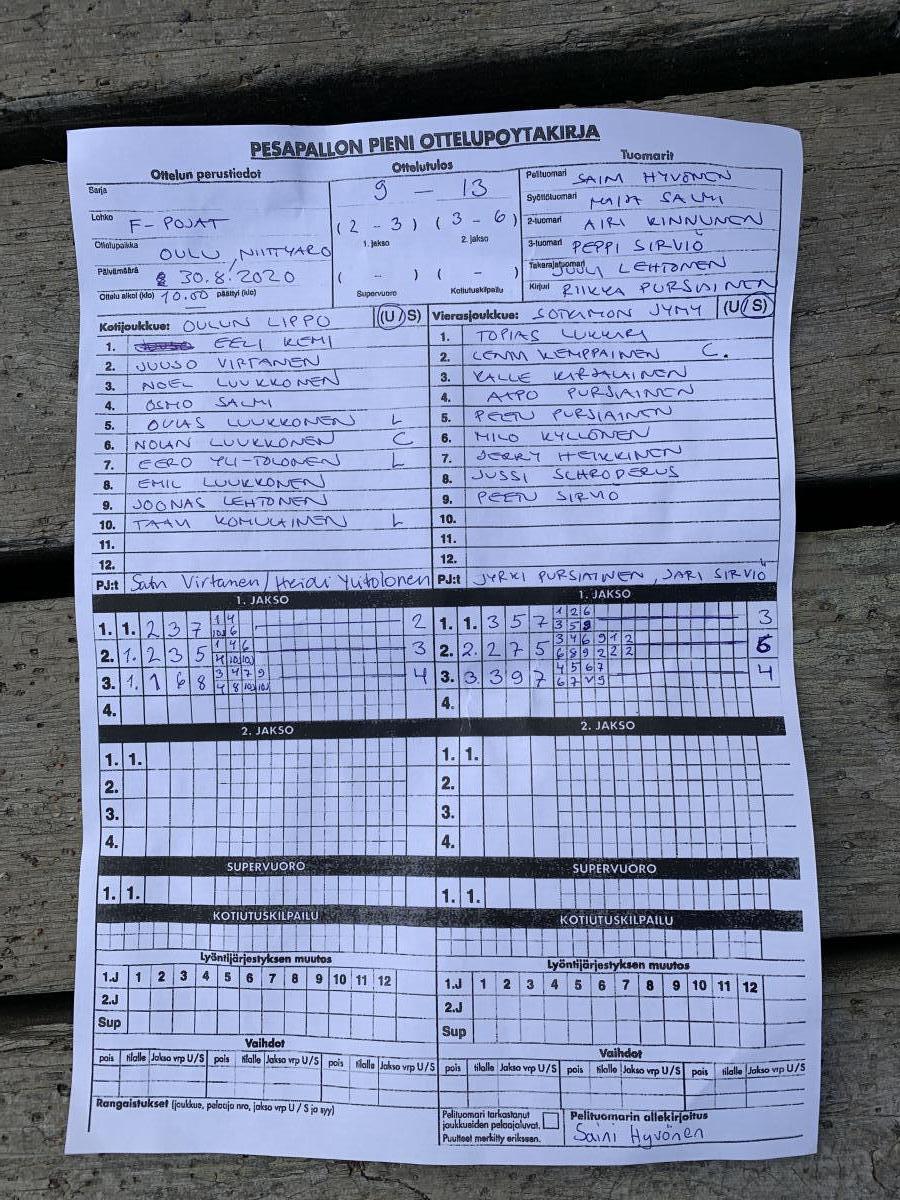 PESÄPALLON PIENI OTTELUPÖYTÄKIRJA
Ottelun perustiedot
Sarja
Lohko F-POJAT
Ottelupaikka OULU, NIITTYARO
Päivämäärä 30.8.2020
Ottelu alkoi (klo) 10.00 päättyi (klo)
Ottelutulos
9 - 13
(2 - 3) (3 - 6)
1. jakso 2. jakso
( - ) ( - )
Supervuoro Kotiutuskilpailu
Tuomarit
Pelituomari SAINI HYVÖNEN
Syöttötuomari MAIJA SALMI
2-tuomari AIRI KINNUNEN
3-tuomari PEPPI SIRVIÖ
Takarajatuomari JUULI LEHTONEN
Kirjuri RIIKKA PURSIAINEN
Kotijoukkue: OULUN LIPPO (U/S)
1. EELI KEMI
2. JUUSO VIRTANEN
3. NOEL LUUKKONEN
4. OSMO SALMI
5. OLIAS LUUKKONEN L
6. NOLAN LUUKKONEN C
7. EERO YLI-TOLONEN L
8. EMIL LUUKKONEN
9. JOONAS LEHTONEN
10. TAAVI KOMULAINEN L
11.
12.
PJ:t Satu Virtanen/Heidi Ylitolonen
Vierasjoukkue: SOTKAMON JYMY (U/S)
1. TOPIAS LUKKARI
2. LENNI KEMPPAINEN C.
3. KALLE KARJALAINEN
4. AAPO PURSIAINEN
5. PEETU PURSIAINEN
6. MILO KYLLÖNEN
7. JERRY HEIKKINEN
8. JUSSI SCHRODERUS
9. PEETU SIRVIÖ
10.
11.
12.
PJ:t JYRKI PURSIAINEN, JARI SIRVIÖ
1. JAKSO
1. 1. 2 3 7 1 4 2
10 6
2. 1. 2 3 5 1 4 6 3
4 10 10
3. 1. 1 6 8 3 4 7 9 4
4 8 10 10
4.
1. JAKSO
1. 1. 3 5 7 1 2 6 3
3 5 9
2. 2. 2 7 5 3 4 6 9 1 2 6
6 8 9 2 2 2
3. 3. 3 9 7 4 5 6 7 4
6 7 9
4.
2. JAKSO
1. 1.
2.
3.
4.
2. JAKSO
1. 1.
2.
3.
4.
SUPERVUORO
1. 1.
SUPERVUORO
1. 1.
KOTIUTUSKILPAILU
KOTIUTUSKILPAILU
Lyöntijärjestyksen muutos
1.J 1 2 3 4 5 6 7 8 9 10 11 12
2.J
Sup
Lyöntijärjestyksen muutos
1.J 1 2 3 4 5 6 7 8 9 10 11 12
2.J
Sup
Vaihdot
pois tilalle Jakso vrp U/S pois tilalle Jakso vrp U/S pois tilalle Jakso vrp U/S
Vaihdot
pois tilalle Jakso vrp U/S pois tilalle Jakso vrp U/S pois tilalle Jakso vrp U/S
Rangaistukset (joukkue, pelaaja nro, jakso vrp U/S ja syy)
Pelituomari tarkastanut
joukkueiden pelaajaluvat.
Puutteet merkitty erikseen.
Pelituomarin allekirjoitus
Saini Hyvönen